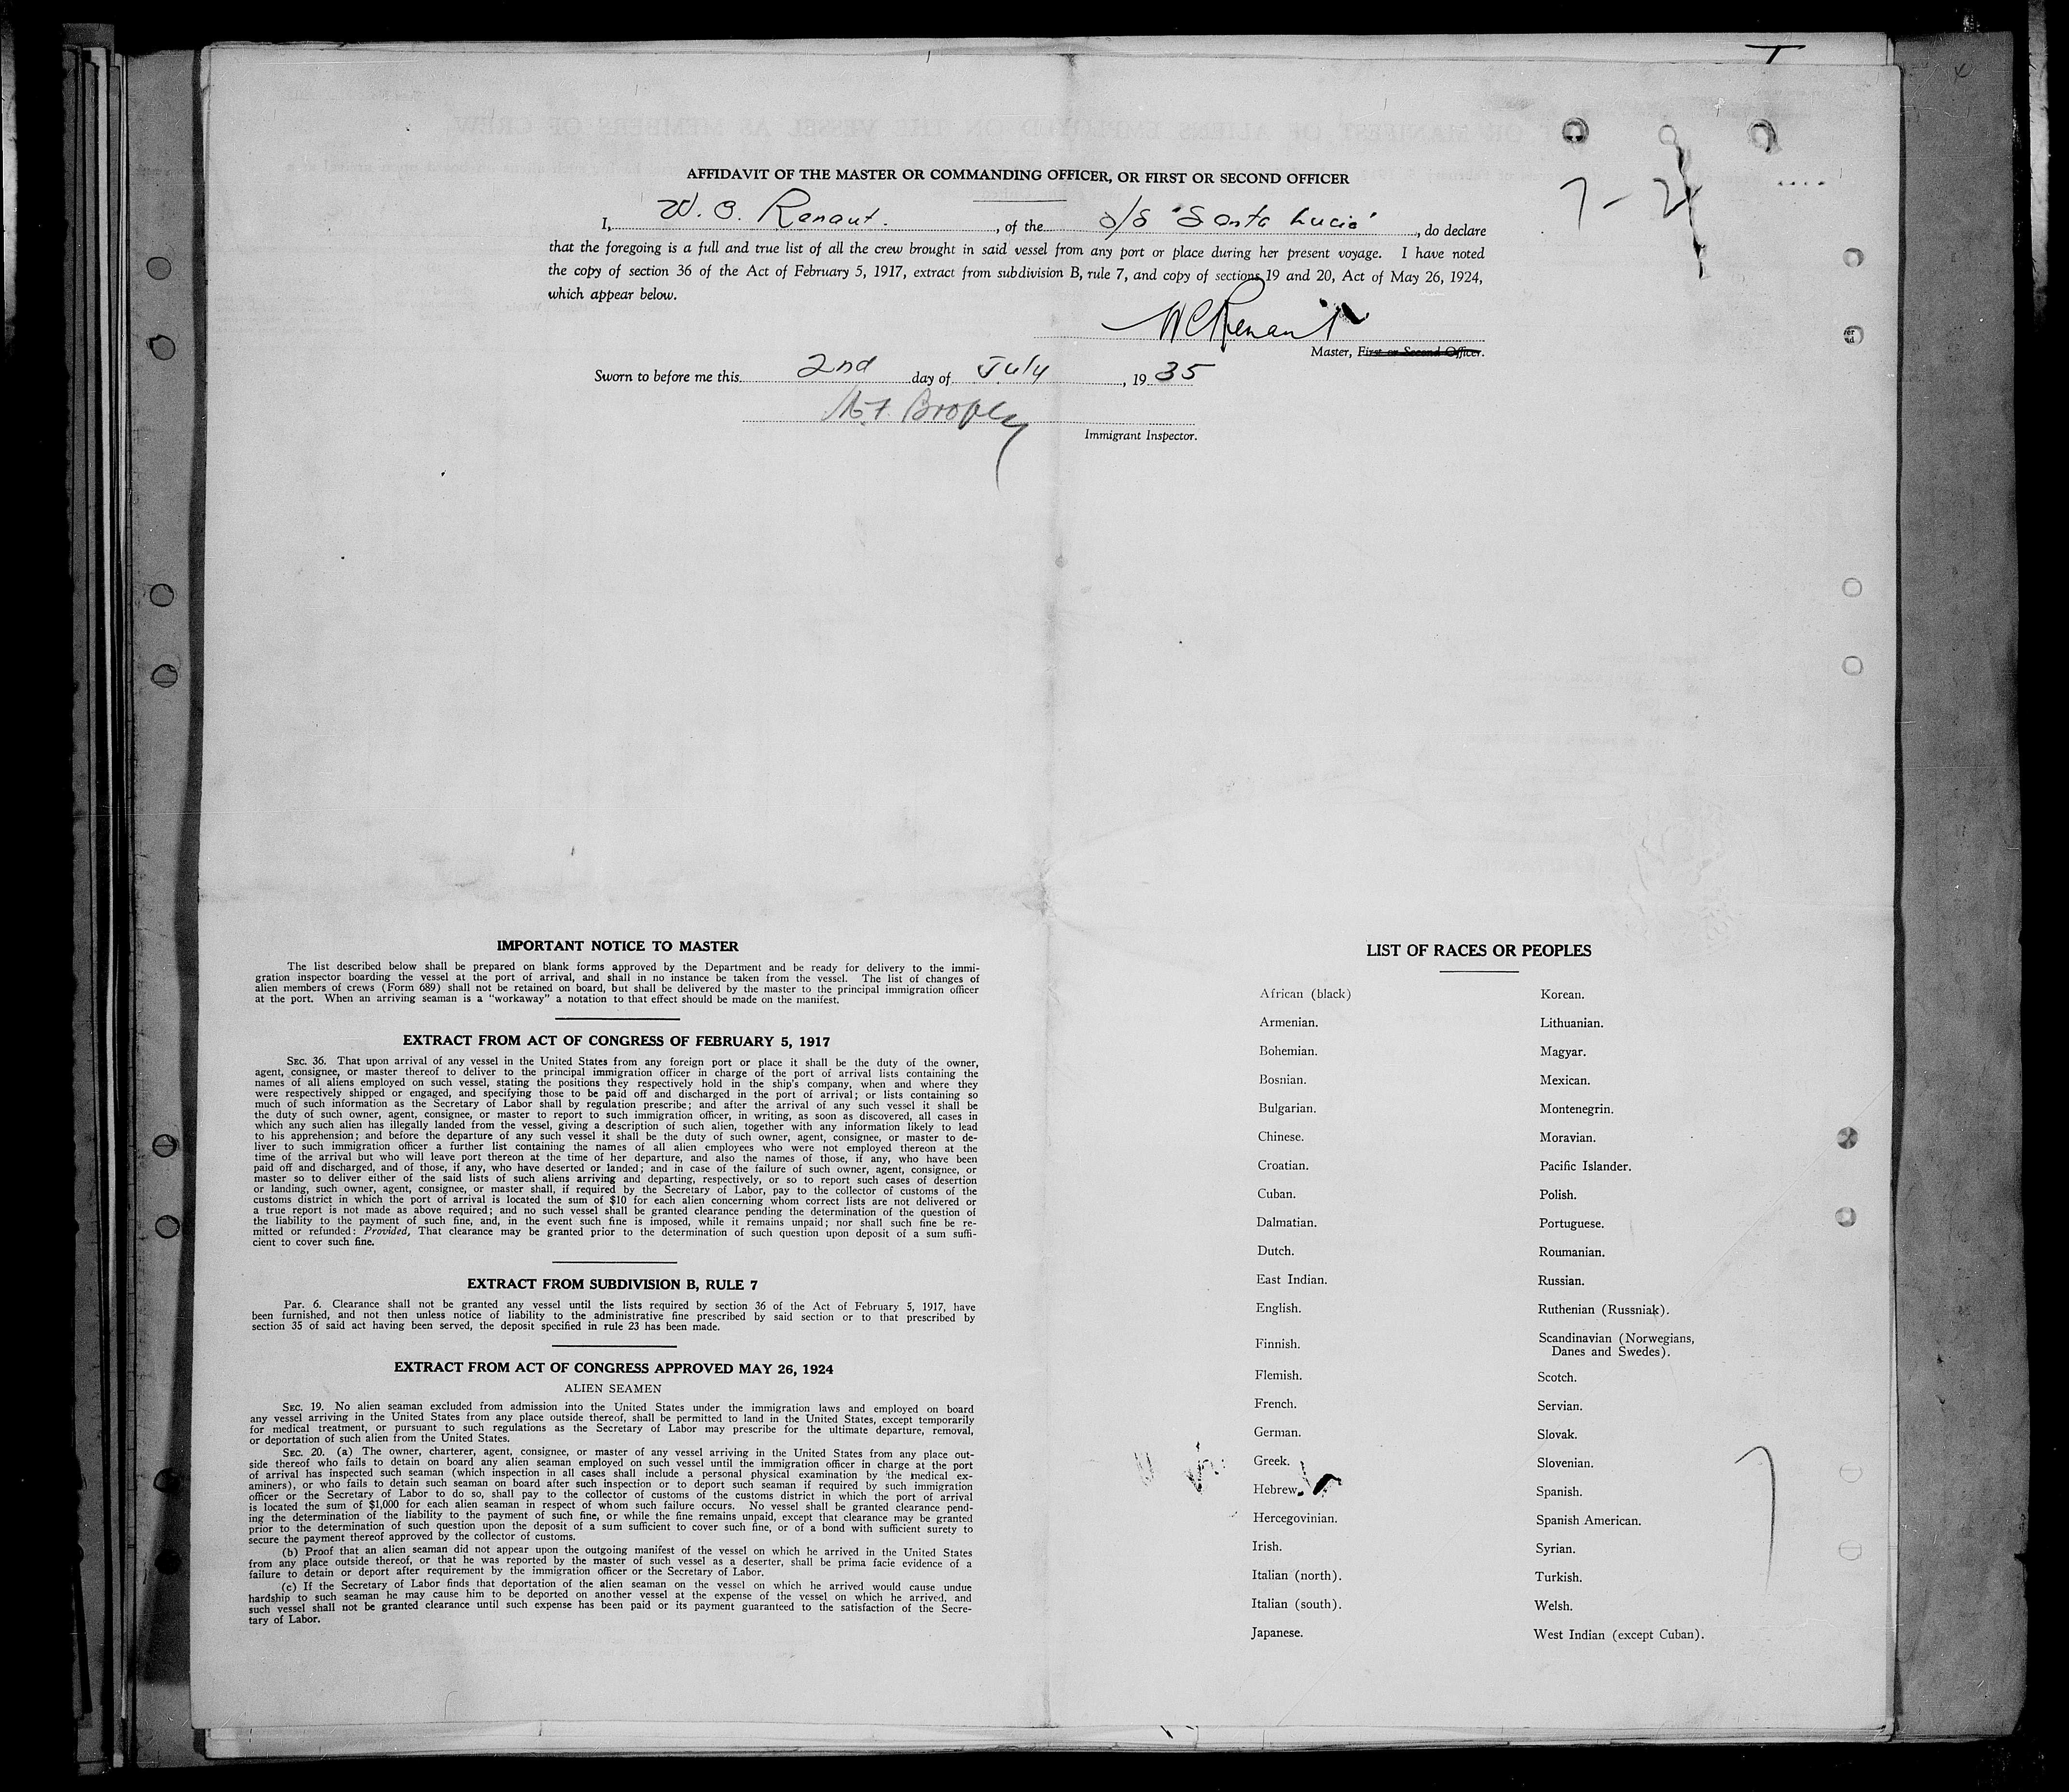 AFFIDAVIT OF THE MASTER OR COMMANDING OFFICER, OR FIRST OR SECOND OFFICER
7-2
I, W. C. Renaut., of the S/S "Santa Lucia", do declare
that the foregoing is a full and true list of all the crew brought in said vessel from any port or place during her present voyage. I have noted
the copy of section 36 of the Act of February 5, 1917, extract from subdivision B, rule 7, and copy of sections 19 and 20, Act of May 26, 1924,
which appear below.
W C Renaut
Master, First or Second Officer.
Sworn to before me this 2nd day of July, 19 35
Brophy
Immigrant Inspector.
IMPORTANT NOTICE TO MASTER
The list described below shall be prepared on blank forms approved by the Department and be ready for delivery to the immi-
gration inspector boarding the vessel at the port of arrival, and shall in no instance be taken from the vessel. The list of changes of
alien members of crews (Form 689) shall not be retained on board, but shall be delivered by the master to the principal immigration officer
at the port. When an arriving seaman is a "workaway" a notation to that effect should be made on the manifest.
EXTRACT FROM ACT OF CONGRESS OF FEBRUARY 5, 1917
SEC. 36. That upon arrival of any vessel in the United States from any foreign port or place it shall be the duty of the owner,
agent, consignee, or master thereof to deliver to the principal immigration officer in charge of the port of arrival lists containing the
names of all aliens employed on such vessel, stating the positions they respectively hold in the ship's company, when and where they
were respectively shipped or engaged, and specifying those to be paid off and discharged in the port of arrival; or lists containing so
much of such information as the Secretary of Labor shall by regulation prescribe; and after the arrival of any such vessel it shall be
the duty of such owner, agent, consignee, or master to report to such immigration officer, in writing, as soon as discovered, all cases in
which any such alien has illegally landed from the vessel, giving a description of such alien, together with any information likely to lead
to his apprehension; and before the departure of any such vessel it shall be the duty of such owner, agent, consignee, or master to de-
liver to such immigration officer a further list containing the names of all alien employees who were not employed thereon at the
time of the arrival but who will leave port thereon at the time of her departure, and also the names of those, if any, who have been
paid off and discharged, and of those, if any, who have deserted or landed; and in case of the failure of such owner, agent, consignee, or
master so to deliver either of the said lists of such aliens arriving and departing, respectively, or so to report such cases of desertion
or landing, such owner, agent, consignee, or master shall, if required by the Secretary of Labor, pay to the collector of customs of the
customs district in which the port of arrival is located the sum of $10 for each alien concerning whom correct lists are not delivered or
a true report is not made as above required; and no such vessel shall be granted clearance pending the determination of the question of
the liability to the payment of such fine, and, in the event such fine is imposed, while it remains unpaid; nor shall such fine be re-
mitted or refunded: Provided, That clearance may be granted prior to the determination of such question upon deposit of a sum suffi-
cient to cover such fine.
EXTRACT FROM SUBDIVISION B, RULE 7
PAR. 6. Clearance shall not be granted any vessel until the lists required by section 36 of the Act of February 5, 1917, have
been furnished, and not then unless notice of liability to the administrative fine prescribed by said section or to that prescribed by
section 35 of said act having been served, the deposit specified in rule 23 has been made.
EXTRACT FROM ACT OF CONGRESS APPROVED MAY 26, 1924
ALIEN SEAMEN
SEC. 19. No alien seaman excluded from admission into the United States under the immigration laws and employed on board
any vessel arriving in the United States from any place outside thereof, shall be permitted to land in the United States, except temporarily
for medical treatment, or pursuant to such regulations as the Secretary of Labor may prescribe for the ultimate departure, removal,
or deportation of such alien from the United States.
SEC. 20. (a) The owner, charterer, agent, consignee, or master of any vessel arriving in the United States from any place out-
side thereof who fails to detain on board any alien seaman employed on such vessel until the immigration officer in charge at the port
of arrival has inspected such seaman (which inspection in all cases shall include a personal physical examination by the medical ex-
aminers), or who fails to detain such seaman on board after such inspection or to deport such seaman if required by such immigration
officer or the Secretary of Labor to do so, shall pay to the collector of customs of the customs district in which the port of arrival
is located the sum of $1,000 for each alien seaman in respect of whom such failure occurs. No vessel shall be granted clearance pend-
ing the determination of the liability to the payment of such fine, or while the fine remains unpaid, except that clearance may be granted
prior to the determination of such question upon the deposit of a sum sufficient to cover such fine, or of a bond with sufficient surety to
secure the payment thereof approved by the collector of customs.
(b) Proof that an alien seaman did not appear upon the outgoing manifest of the vessel on which he arrived in the United States
from any place outside thereof, or that he was reported by the master of such vessel as a deserter, shall be prima facie evidence of a
failure to detain or deport after requirement by the immigration officer or the Secretary of Labor.
(c) If the Secretary of Labor finds that deportation of the alien seaman on the vessel on which he arrived would cause undue
hardship to such seaman he may cause him to be deported on another vessel at the expense of the vessel on which he arrived, and
such vessel shall not be granted clearance until such expense has been paid or its payment guaranteed to the satisfaction of the Secre-
tary of Labor.
LIST OF RACES OR PEOPLES
African (black)
Armenian.
Bohemian.
Bosnian.
Bulgarian.
Chinese.
Croatian.
Cuban.
Dalmatian.
Dutch.
East Indian.
English.
Finnish.
Flemish.
French.
German.
Greek.
Hebrew.
Hercegovinian.
Irish.
Italian (north).
Italian (south).
Japanese.
Korean.
Lithuanian.
Magyar.
Mexican.
Montenegrin.
Moravian.
Pacific Islander.
Polish.
Portuguese.
Roumanian.
Russian.
Ruthenian (Russniak).
Scandinavian (Norwegians,
Danes and Swedes).
Scotch.
Servian.
Slovak.
Slovenian.
Spanish.
Spanish American.
Syrian.
Turkish.
Welsh.
West Indian (except Cuban).